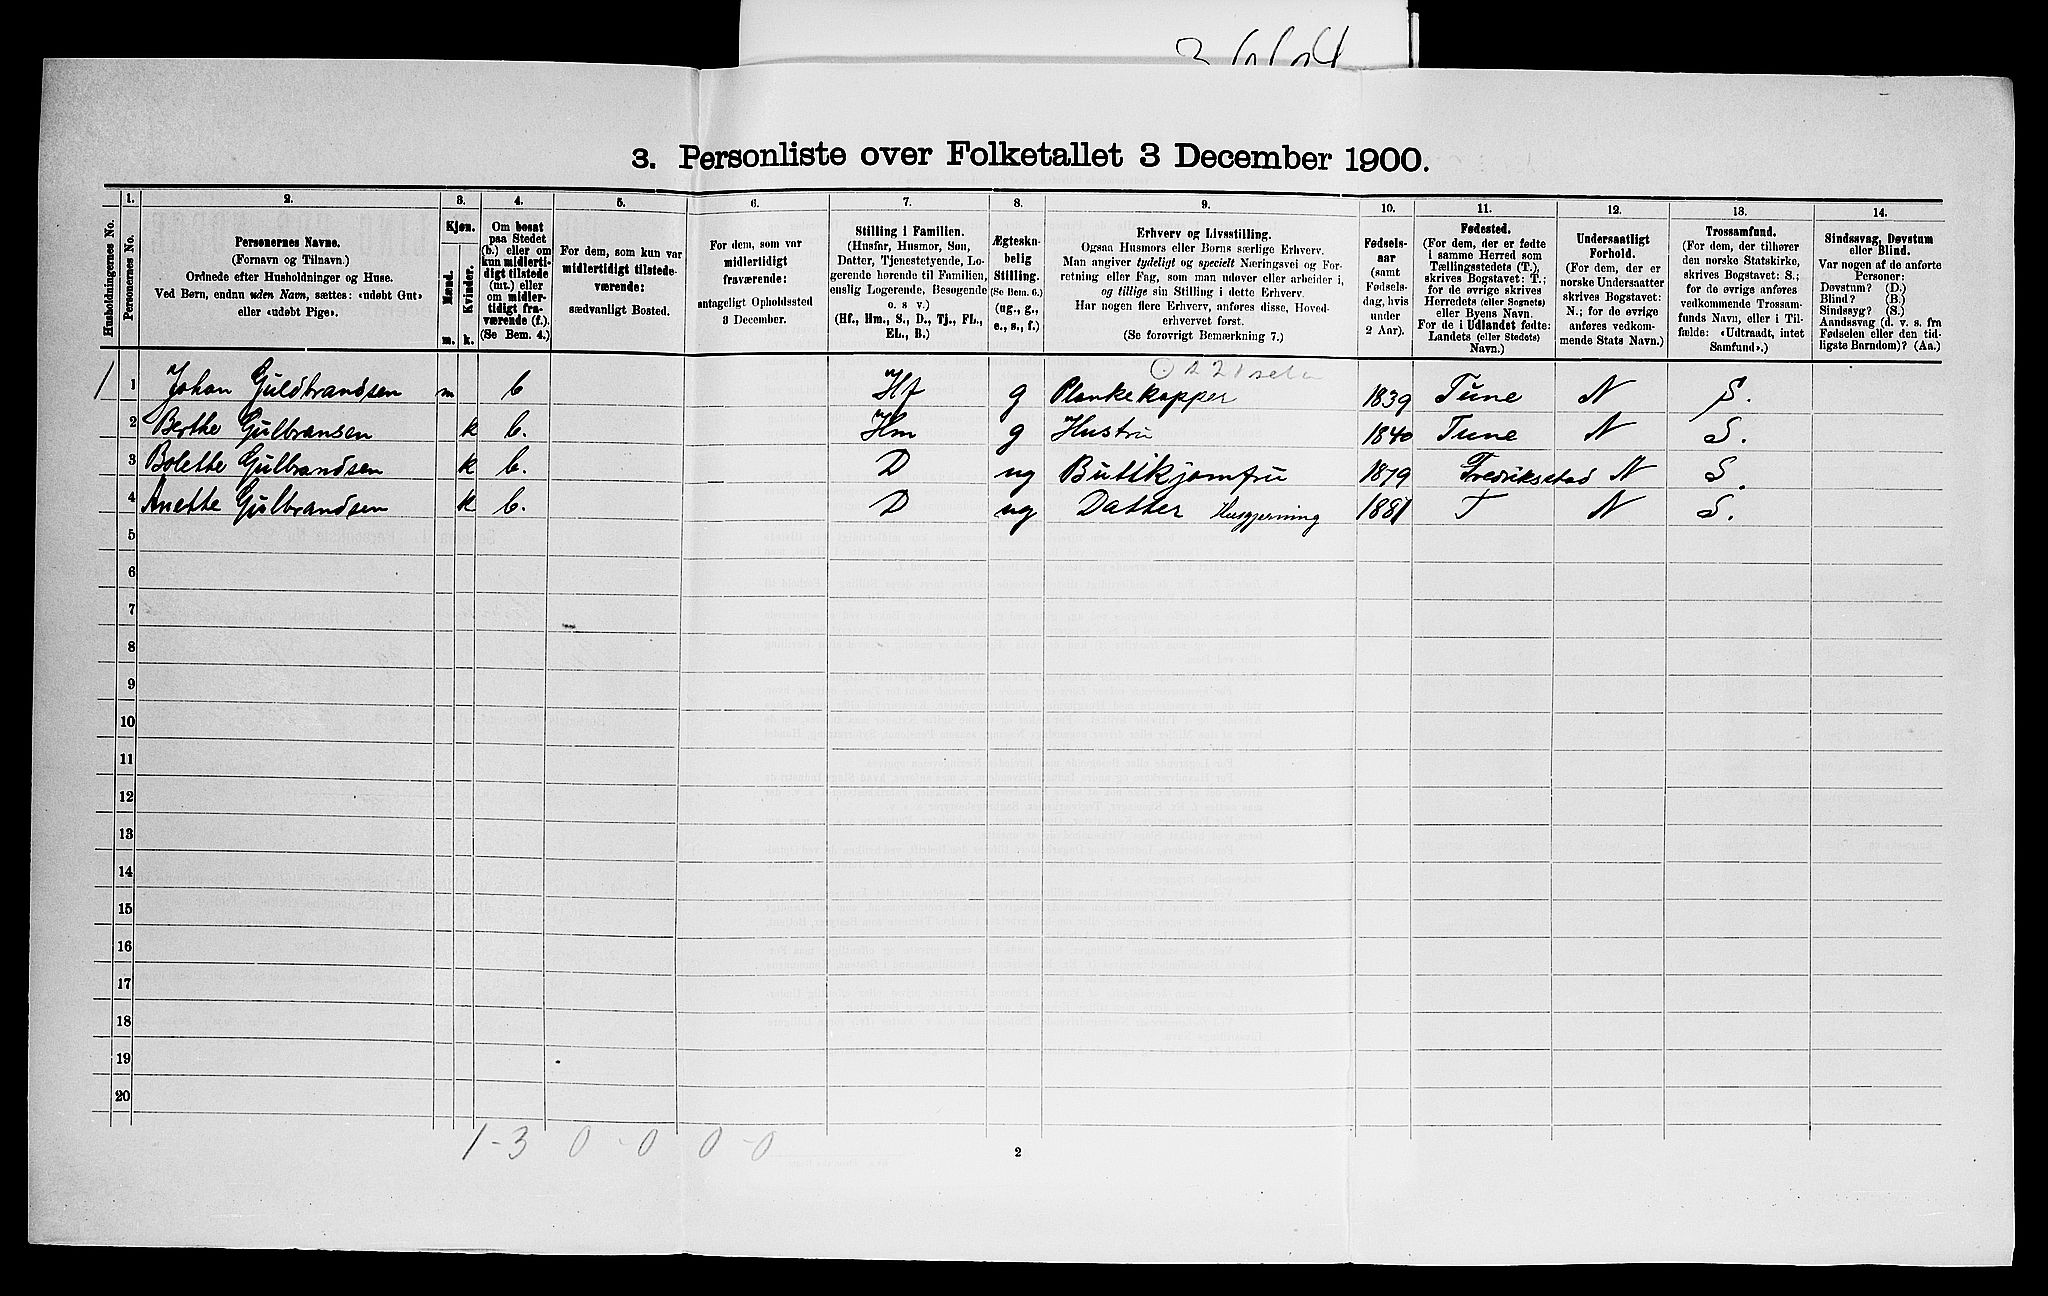 3. Personliste over Folketallet 3 December 1900.
1. 2. 3. 4. 5. 6. 7. 8. 9. 10. 11. 12. 13. 14.
Husholdningernes No.
Personernes No.
Personernes Navne.
(Fornavn og Tilnavn.)
Ordnede efter Husholdninger og Huse.
Ved Børn, endnu uden Navn, sættes: «udøbt Gut»
eller «udøbt Pige».
Kjøn.
Mænd.
Kvinder.
m. k.
Om bosat
paa Stedet
(b.) eller om
kun midlerti-
digt tilstede
(mt.) eller
om midler-
tidigt fra-
værende (f.).
(Se Bem. 4.)
For dem, som kun var
midlertidigt tilstede-
værende:
sædvanligt Bosted.
For dem, som var
midlertidigt
fraværende:
antageligt Opholdssted
3 December.
Stilling i Familien.
(Husfar, Husmor, Søn,
Datter, Tjenestetyende, Lo-
gerende hørende til Familien,
enslig Logerende, Besøgende
o. s v.)
(Hf., Hm., S., D., Tj., FL.,
EL., B.)
Ægteska-
belig
Stilling.
(Se Bem. 6.)
(ug., g.,
e., s., f.)
Erhverv og Livsstilling.
Ogsaa Husmors eller Børns særlige Erhverv.
Man angiver tydeligt og specielt Næringsvei og For-
retning eller Fag, som man udøver eller arbeider i,
og tillige sin Stilling i dette Erhverv.
Har nogen flere Erhverv, anføres disse, Hoved-
erhvervet først.
(Se forøvrigt Bemærkning 7.)
Fødsels-
aar
(samt
Fødsels-
dag, hvis
under
2 Aar).
Fødested.
(For dem, der er fødte
i samme Herred som
Tællingsstedets (T.),
skrives Bogstavet: T.;
for de øvrige skrives
Herredets (eller Sognets)
eller Byens Navn.
For de i Udlandet fødte:
Landets (eller Stedets)
Navn.)
Undersaatligt
Forhold.
(For dem, der er
norske Undersaatter
skrives Bogstavet:
N.; for de øvrige
anføres vedkom-
mende Stats Navn.)
Trossamfund.
(For dem, der tilhører
den norske Statskirke,
skrives Bogstavet: S.;
for de øvrige anføres
vedkommende Trossam-
funds Navn, eller i Til-
fælde: «Udtraadt, intet
Samfund».)
Sindssvag, Døvstum
eller Blind.
Var nogen af de anførte
Personer:
Døvstum? (D.)
Blind? (B.)
Sindssyg? (S.)
Aandssvag (d. v. s. fra
Fødselen eller den tid-
ligste Barndom)? (Aa.)
1 1 Johan Guldbrandsen m b Hf g Plankekapper 1839 Tune N S.
2 Berthe Gulbransen k b. Hm g Hustru 1840 Tune N S.
3 Bolette Gulbrandsen k b. D ug Butikjomfru 1879 Fredriksstad N S.
4 Anette Gulbrandsen k b. D ug Datter Husgjerning 1881 T N S.
5
6
7
8
9
10
11
12
13
14
15
16
17
18
19
20
1-3 0-0 0-0
2